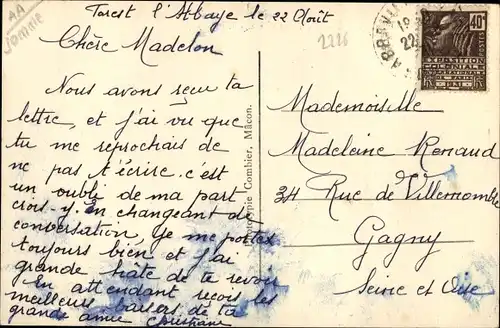 Forest l'Abbaye le 22 Août
Chère Madelon
Nous avons reçu ta
lettre, et j'ai vu que
tu me reprochais de
ne pas t'écrire. c'est
un oubli de ma part
crois-y. En changeant de
conversation je me portes
toujours bien et j'ai
grande hâte de te revoir
En attendant reçois les
meilleurs baisers de ta
grande amie Christiane
Phototypie Combier, Mâcon.
AA
Somme
2226
22
40c
POSTES
EXPOSITION
COLONIALE
INTERNATIONALE
PARIS
1931
Mademoiselle
Madeleine Renaud
34 Rue de Villemomble
Gagny
Seine et Oise